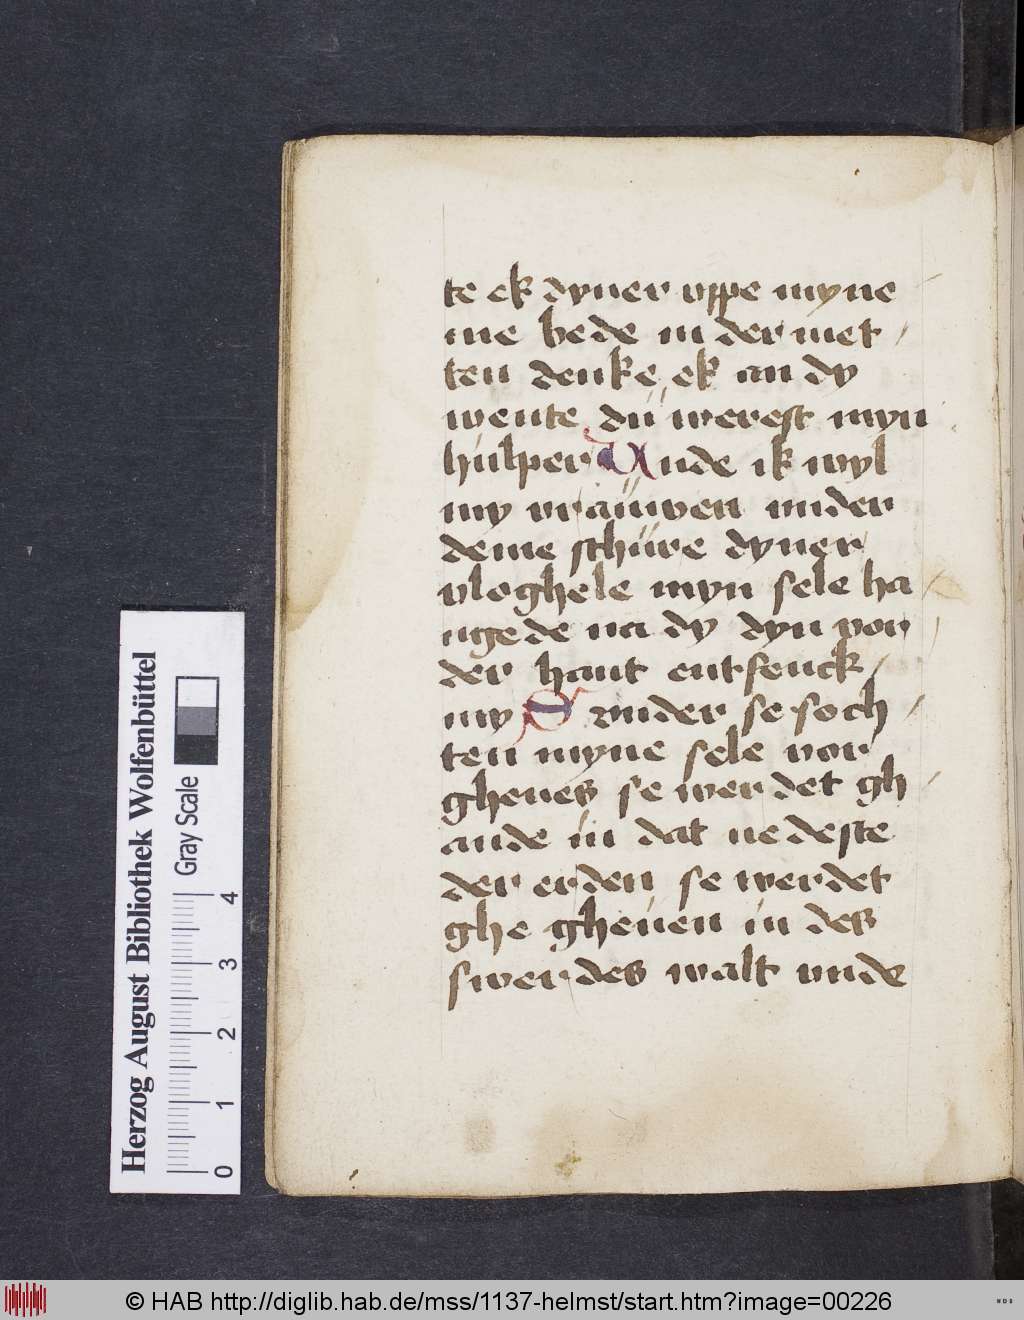 te ek dyner vppe myne
me bede in der met
ten denke ek an dy
wente du werest myn
hulper Unde ik wyl
my vrauwen under
deme schure dyner
vloghele myn sele ha
ngede na dy dyn vor
der hant entfenck
my S under se soch
ten myne sele vor
gheues se werdet gh
ande in dat nedeste
der erden se werdet
ghe gheuen in des
swerdes walt vnde
Herzog August Bibliothek Wolfenbüttel
Gray Scale
0 1 2 3 4
© HAB http://diglib.hab.de/mss/1137-helmst/start.htm?image=00226